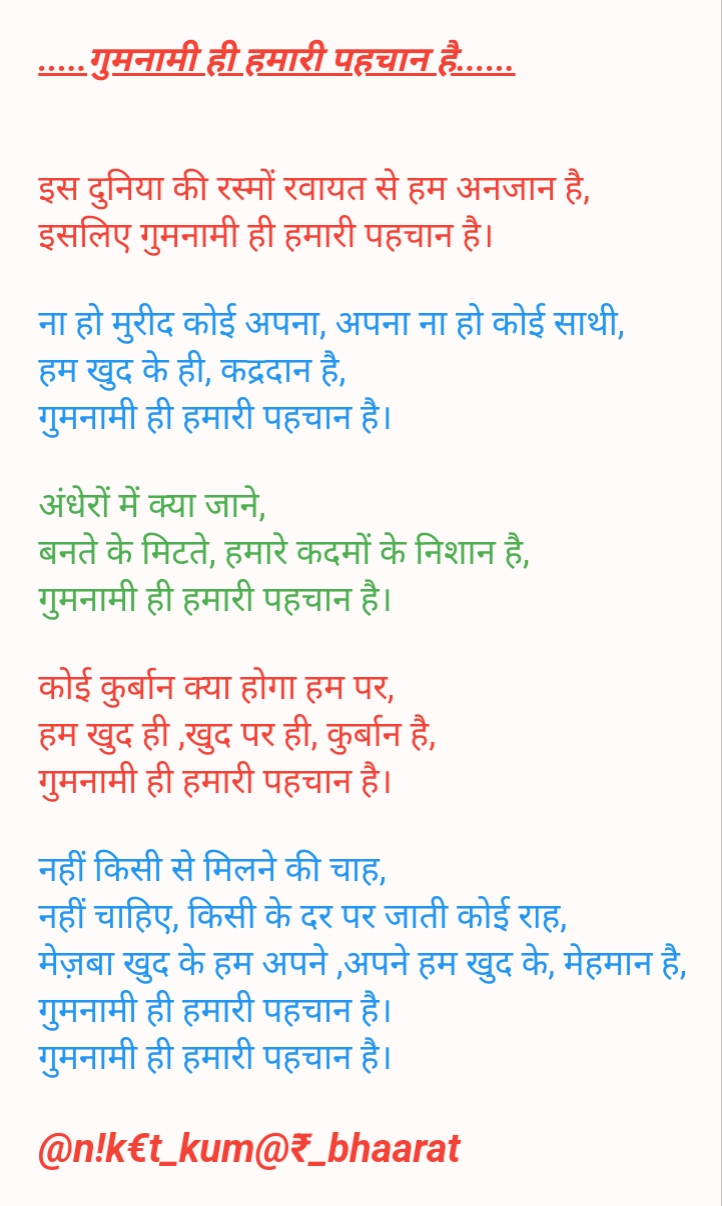 .....गुमनामी ही हमारी पहचान है......
इस दुनिया की रस्मों रवायत से हम अनजान है,
इसलिए गुमनामी ही हमारी पहचान है।
ना हो मुरीद कोई अपना, अपना ना हो कोई साथी,
हम खुद के ही, कद्रदान है,
गुमनामी ही हमारी पहचान है।
अंधेरों में क्या जाने,
बनते के मिटते, हमारे कदमों के निशान है,
गुमनामी ही हमारी पहचान है।
कोई कुर्बान क्या होगा हम पर,
हम खुद ही ,खुद पर ही, कुर्बान है,
गुमनामी ही हमारी पहचान है।
नहीं किसी से मिलने की चाह,
नहीं चाहिए, किसी के दर पर जाती कोई राह,
मेज़बा खुद के हम अपने ,अपने हम खुद के, मेहमान है,
गुमनामी ही हमारी पहचान है।
गुमनामी ही हमारी पहचान है।
@n!k€t_kum@₹_bhaarat